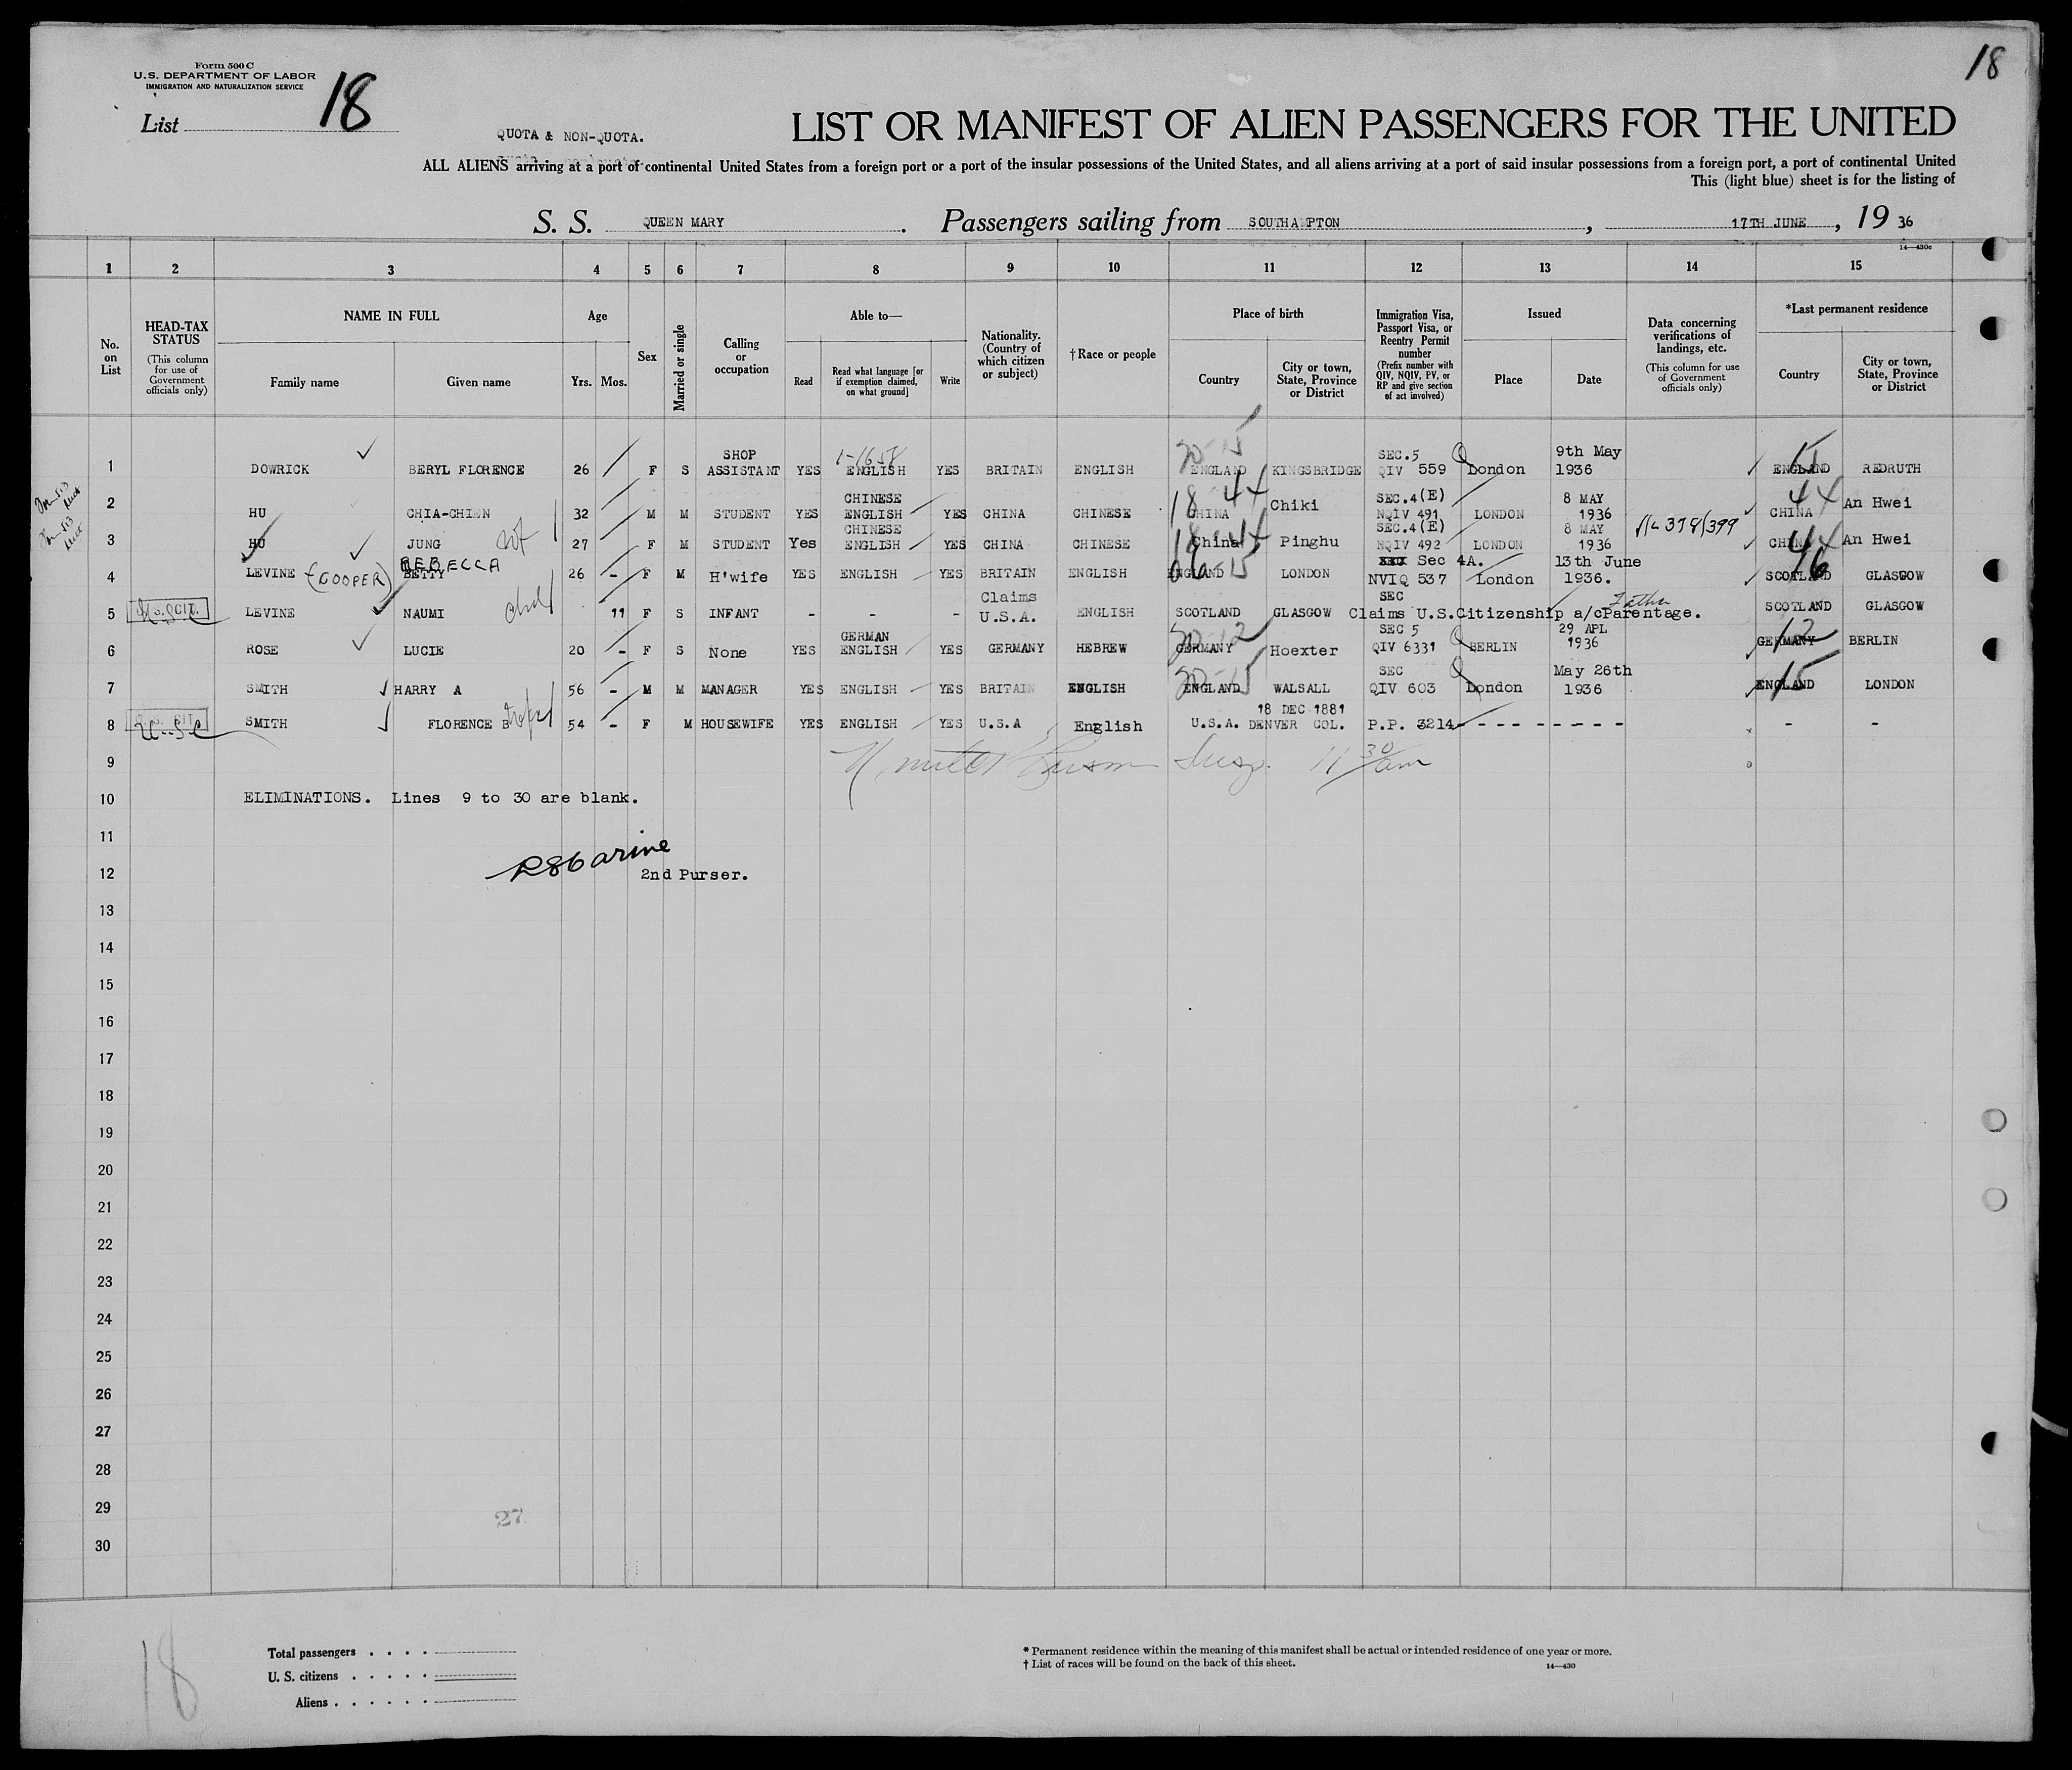 18
Form 500 C
U.S. DEPARTMENT OF LABOR
IMMIGRATION AND NATURALIZATION SERVICE
List 18
QUOTA & NON-QUOTA.
LIST OR MANIFEST OF ALIEN PASSENGERS FOR THE UNITED
ALL ALIENS arriving at a port of continental United States from a foreign port or a port of the insular possessions of the United States, and all aliens arriving at a port of said insular possessions from a foreign port, a port of continental United
This (light blue) sheet is for the listing of
S. S. QUEEN MARY. Passengers sailing from SOUTHAMPTON, 17TH JUNE, 19 36
14—430c
1 2 3 4 5 6 7 8 9 10 11 12 13 14 15
No. on List
HEAD-TAX STATUS (This column for use of Government officials only)
NAME IN FULL Family name Given name
Age Yrs. Mos.
Sex
Married or single
Calling or occupation
Able to— Read Read what language [or if exemption claimed, on what ground] Write
Nationality. (Country of which citizen or subject)
†Race or people
Place of birth Country City or town, State, Province or District
Immigration Visa, Passport Visa, or Reentry Permit number (Prefix number with QIV, NQIV, PV, or RP and give section of act involved)
Issued Place Date
Data concerning verifications of landings, etc. (This column for use of Government officials only)
*Last permanent residence Country City or town, State, Province or District
1 DOWRICK BERYL FLORENCE 26 F S SHOP ASSISTANT YES 1-1658 ENGLISH YES BRITAIN ENGLISH 20-15 ENGLAND KINGSBRIDGE SEC.5 QIV 559 Q London 9th May 1936 15 ENGLAND REDRUTH
2 HU CHIA-CHIEN 32 M M STUDENT YES CHINESE ENGLISH YES CHINA CHINESE 18-44 CHINA Chiki SEC.4(E) NQIV 491 LONDON 8 MAY 1936 44 CHINA An Hwei
3 HU JUNG 27 F M STUDENT Yes CHINESE ENGLISH YES CHINA CHINESE 18-44 China Pinghu SEC.4(E) NQIV 492 LONDON 8 MAY 1936 398/399 44 CHINA An Hwei
4 LEVINE (COOPER) REBECCA BETTY 26 - F M H'wife YES ENGLISH YES BRITAIN ENGLISH 16-15 ENGLAND LONDON Sec 4A. NVIQ 537 London 13th June 1936. 46 SCOTLAND GLASGOW
5 U.S. CIT. LEVINE NAUMI child 11 F S INFANT - - - Claims U.S.A. ENGLISH SCOTLAND GLASGOW SEC Claims U.S.Citizenship a/c Father Parentage. SCOTLAND GLASGOW
6 ROSE LUCIE 20 - F S None YES GERMAN ENGLISH YES GERMANY HEBREW 20-12 GERMANY Hoexter SEC 5 QIV 6331 Q BERLIN 29 APL 1936 12 GERMANY BERLIN
7 SMITH HARRY A 56 - M M MANAGER YES ENGLISH YES BRITAIN ENGLISH 20-15 ENGLAND WALSALL SEC QIV 603 Q London May 26th 1936 15 ENGLAND LONDON
8 U.S. CIT. SMITH FLORENCE B 54 - F M HOUSEWIFE YES ENGLISH YES U.S.A English U.S.A. 18 DEC 1881 DENVER COL. P.P. 3214 - - - - - - - - - - -
9 Insp. 11 30/am
10 ELIMINATIONS. Lines 9 to 30 are blank.
11
12 2nd Purser.
13
14
15
16
17
18
19
20
21
22
23
24
25
26
27
28
29 27
30
18
Total passengers . . . .
U. S. citizens . . . . .
Aliens . . . . . .
* Permanent residence within the meaning of this manifest shall be actual or intended residence of one year or more.
† List of races will be found on the back of this sheet.
14—430